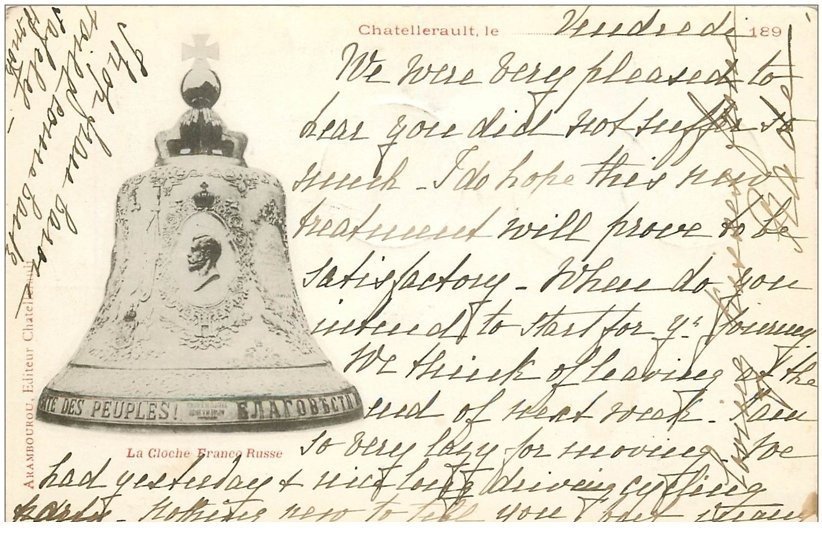 Chatellerault, le Vendredi 189
We were very pleased to
hear you did not suffer so
much - I do hope this new
treatment will prove to be
satisfactory - When do you
intend to start for yr journey
We think of leaving at the
end of next week. I am
so very lazy for moving. We
had yesterday a nice long driving cycling
party - nothing new to tell you
TÉ DES PEUPLES! БЛАГОВѢСТИ
La Cloche Franco Russe
ARAMBOUROU, Editeur Chatellerault